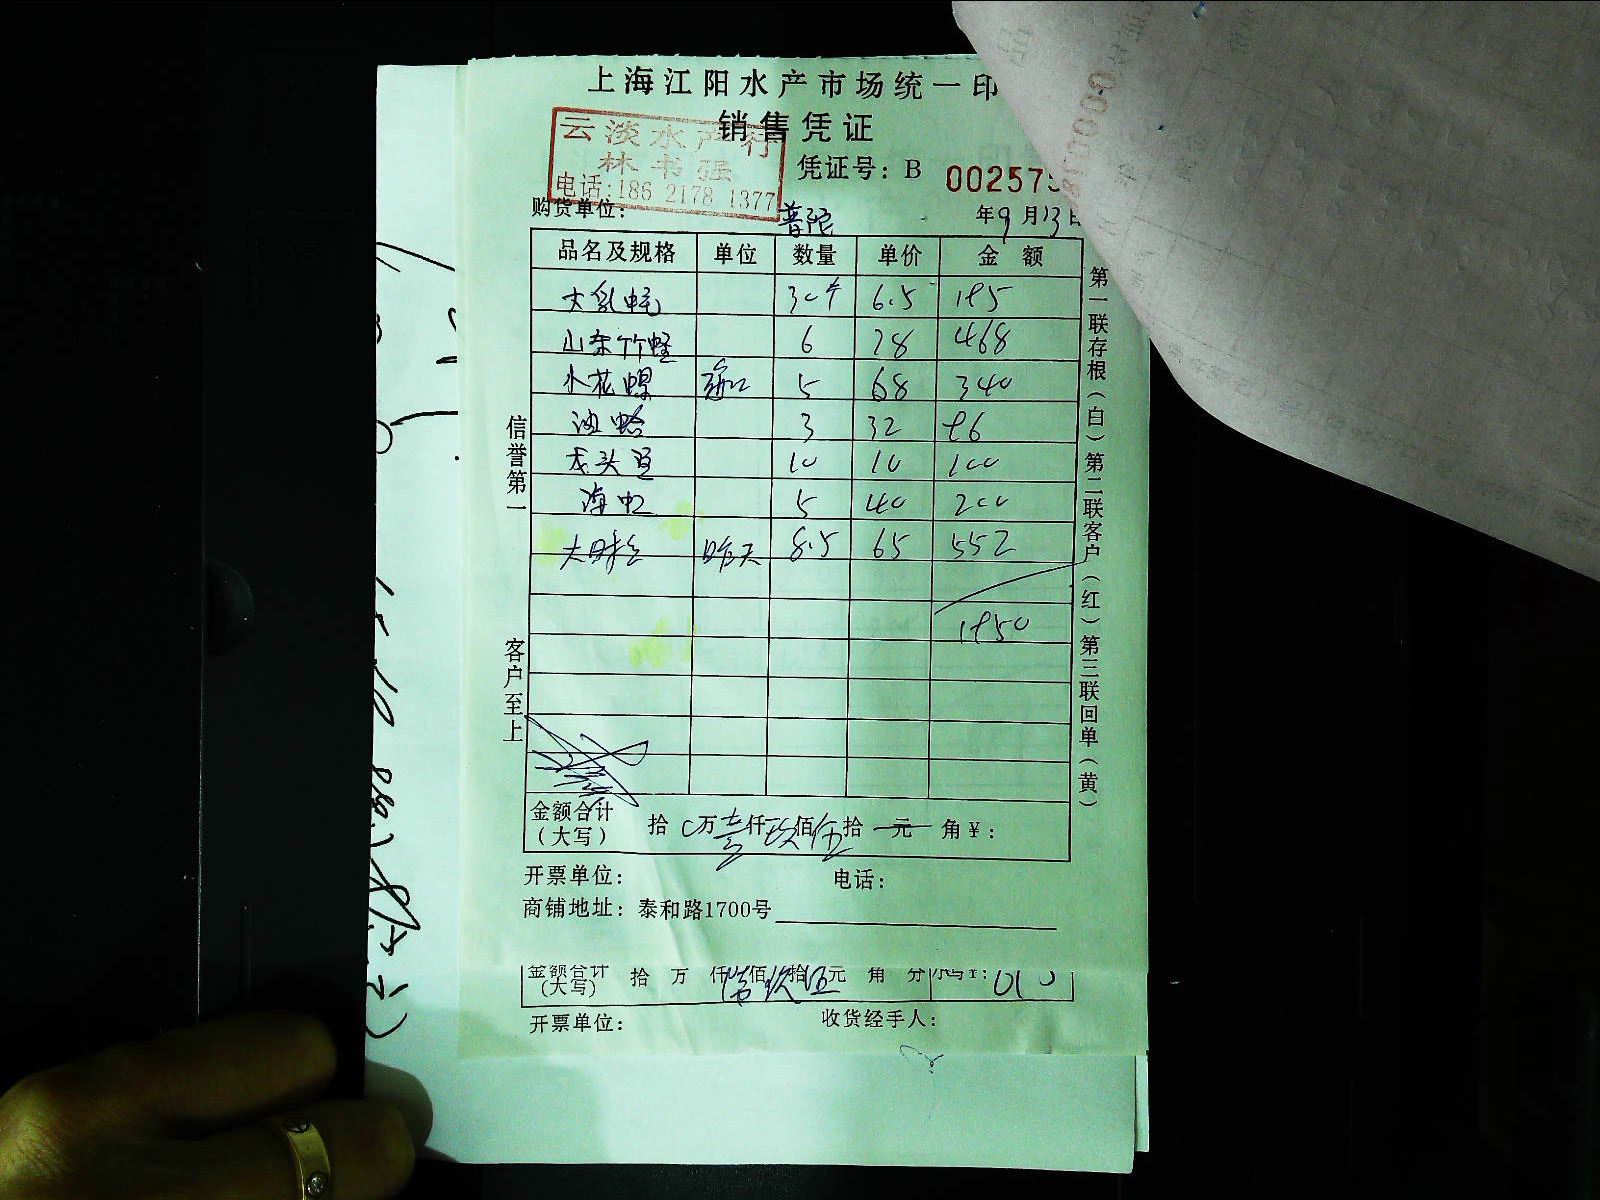 上海江阳水产市场统一印
销售凭证
云淡水产行
林书强
电话:186 2178 1377
凭证号：B 00257
购货单位： 普陀 年9月13日
品名及规格 单位 数量 单价 金额
30个 6.5 195
山东竹蛏 6 78 468
小花螺 5 68 340
油蛤 3 32 96
龙头 10 10 100
海虹 5 40 200
大 昨天 8.5 65 552
1950
金额合计（大写） 拾 万壹仟玖佰伍拾 元 角￥：
开票单位： 电话：
商铺地址：泰和路1700号
金额合计（大写） 拾 万 仟 佰玖拾伍元 角 分
开票单位： 收货经手人：
信誉第一
客户至上
第一联存根（白）第二联客户（红）第三联回单（黄）